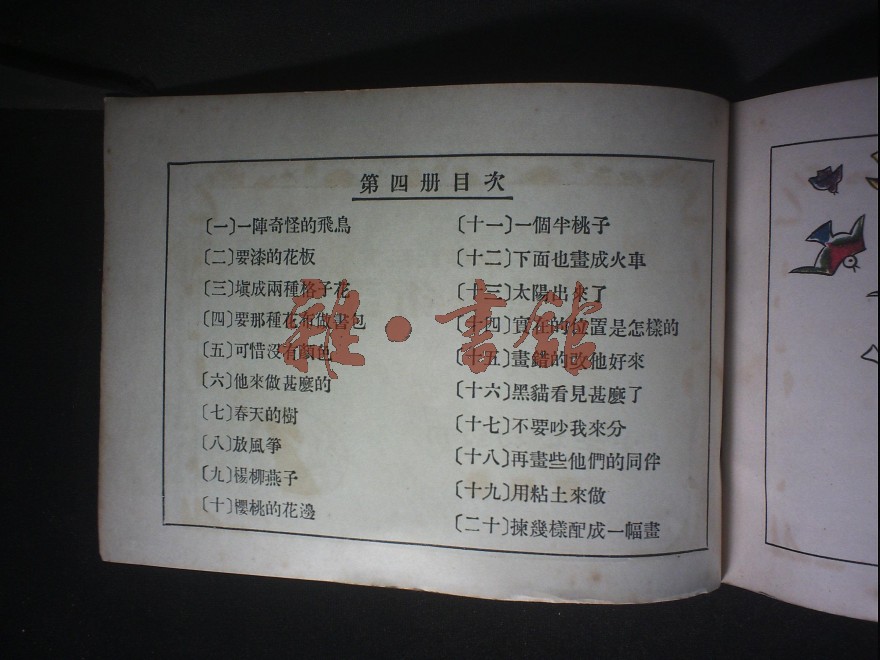 第四册目次
〔一〕一陣奇怪的飛鳥
〔二〕要漆的花板
〔三〕塡成兩種格子花
〔四〕要那種花布做書包
〔五〕可惜沒有顏色
〔六〕他來做甚麼的
〔七〕春天的樹
〔八〕放風箏
〔九〕楊柳燕子
〔十〕櫻桃的花邊
〔十一〕一個半桃子
〔十二〕下面也畫成火車
〔十三〕太陽出來了
〔十四〕實在的位置是怎樣的
〔十五〕畫錯的改他好來
〔十六〕黑貓看見甚麼了
〔十七〕不要吵我來分
〔十八〕再畫些他們的同伴
〔十九〕用粘土來做
〔二十〕揀幾樣配成一幅畫
雜·書館